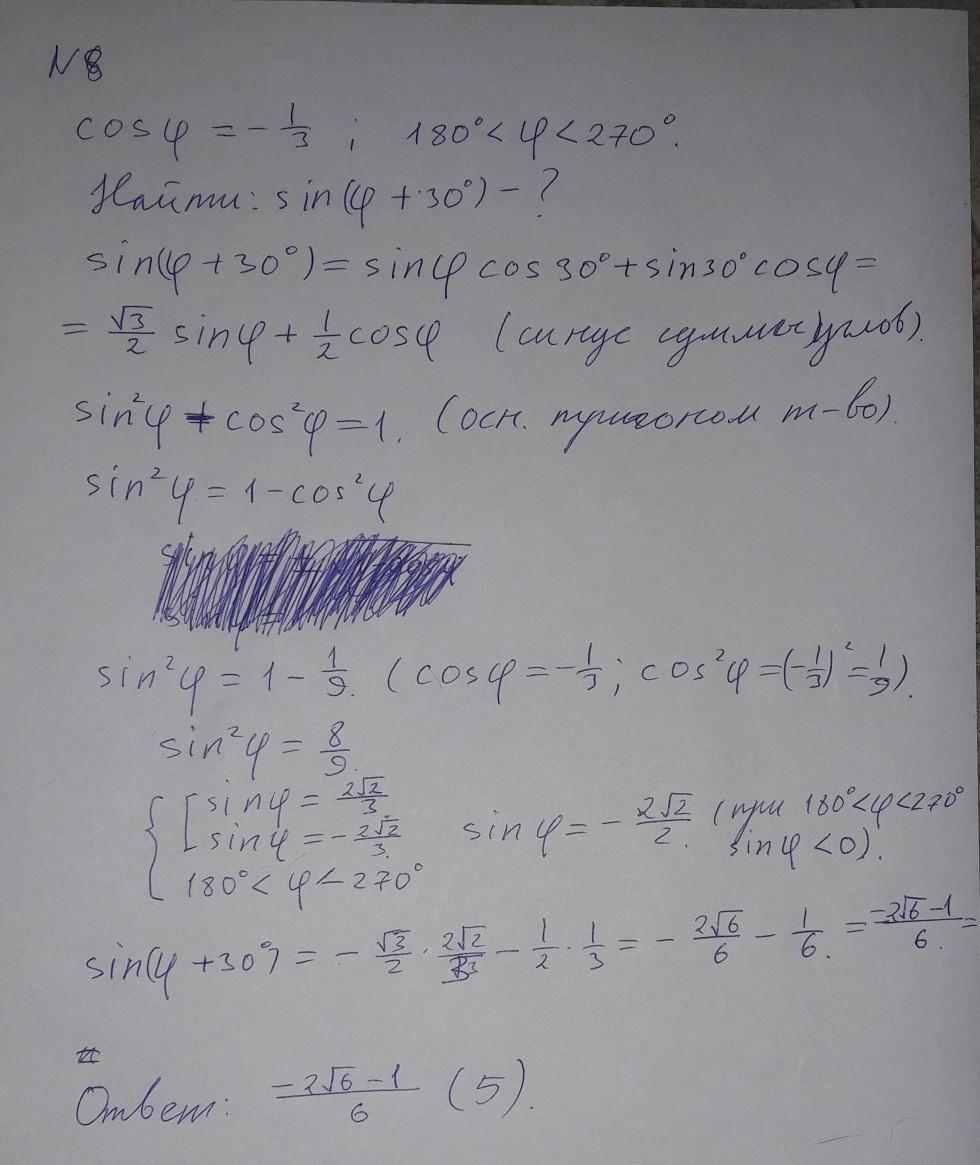 N8
cosφ = -1/3 ; 180° < φ < 270°.
Найти: sin(φ + 30°) - ?
sin(φ + 30°) = sinφ cos30° + sin30° cosφ =
= √3/2 sinφ + 1/2 cosφ (синус суммы углов).
sin²φ + cos²φ = 1. (осн. тригоном т-во).
sin²φ = 1 - cos²φ
sin²φ = 1 - 1/9. (cosφ = -1/3; cos²φ = (-1/3)² = 1/9).
sin²φ = 8/9.
{ [ sinφ = 2√2/3
sinφ = -2√2/3.
180° < φ < 270°
sinφ = -2√2/2. (при 180° < φ < 270°
sinφ < 0).
sin(φ + 30°) = -√3/2 · 2√2/3 - 1/2 · 1/3 = -2√6/6 - 1/6. = -2√6-1/6. =
Ответ: -2√6-1/6 (5).